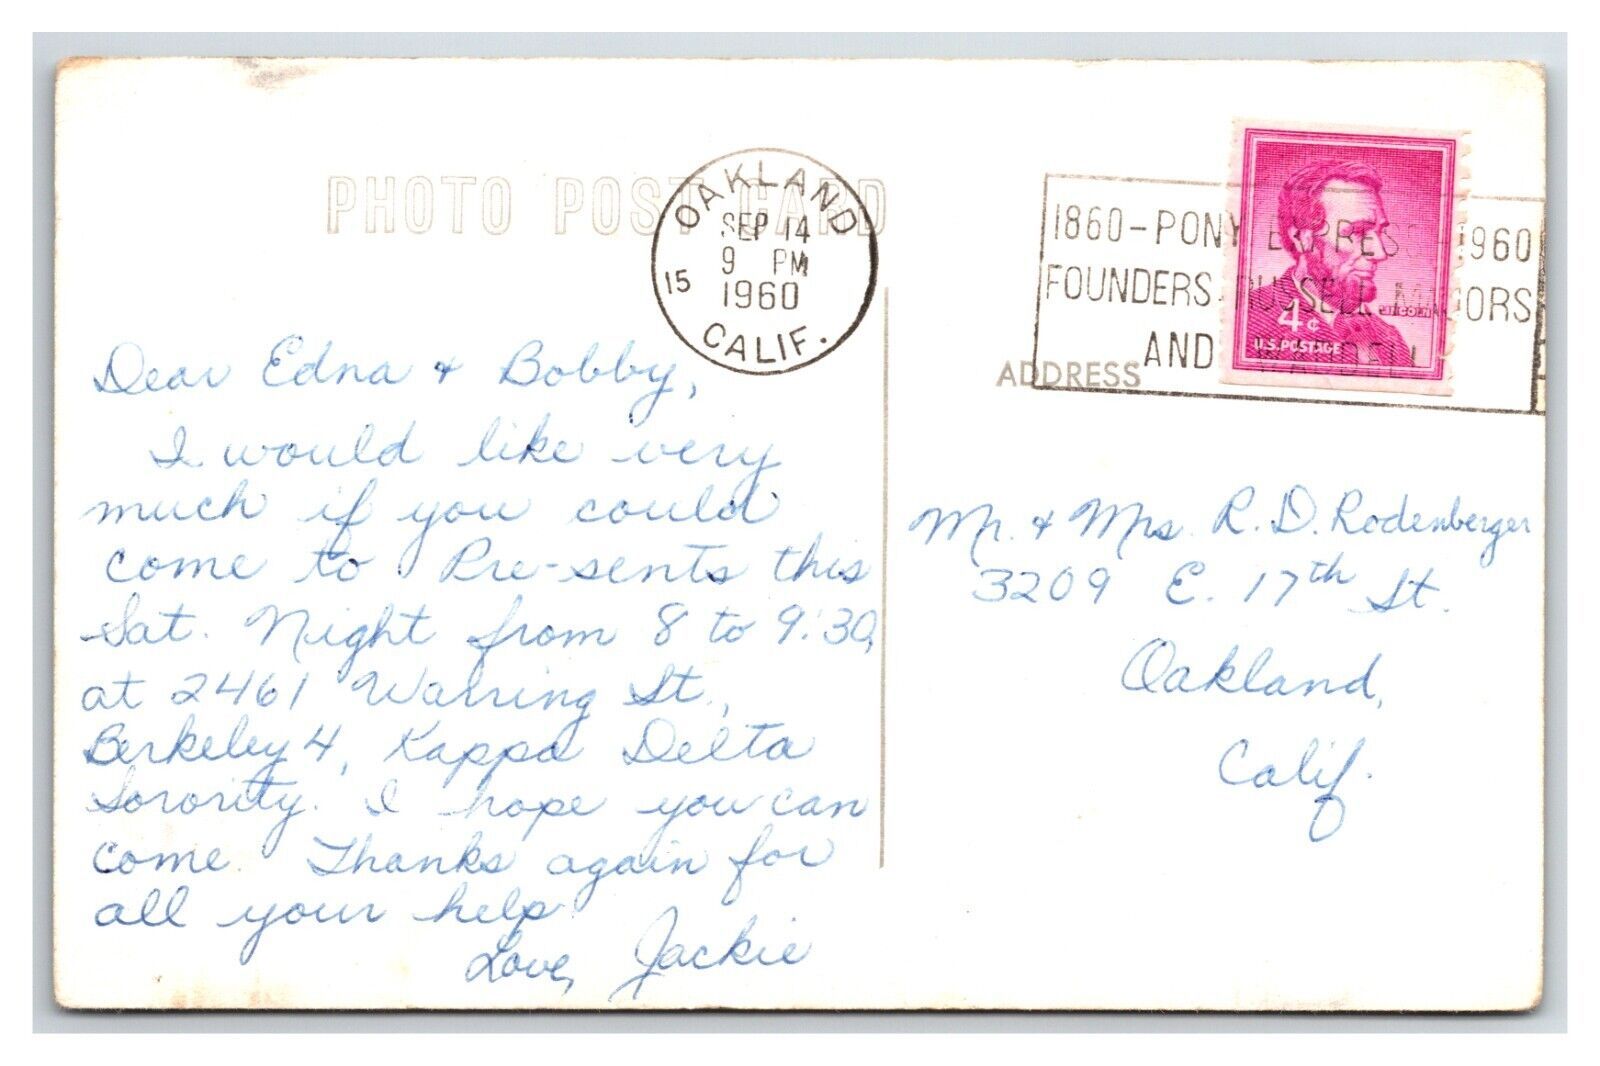 PHOTO POST CARD
OAKLAND
SEP 14
9 PM
1960
15
CALIF.
1860-PONY EXPRESS-1960
FOUNDERS-RUSSELL MAJORS
AND WADDELL
4¢
LINCOLN
U.S. POSTAGE
ADDRESS
Dear Edna + Bobby,
I would like very
much if you could
come to Pre-sents this
Sat. Night from 8 to 9:30,
at 2461 Warring St.,
Berkeley 4, Kappa Delta
Sorority. I hope you can
come. Thanks again for
all your help
Love, Jackie
Mr. + Mrs. R. D. Rodenberger
3209 E. 17th St.
Oakland,
Calif.